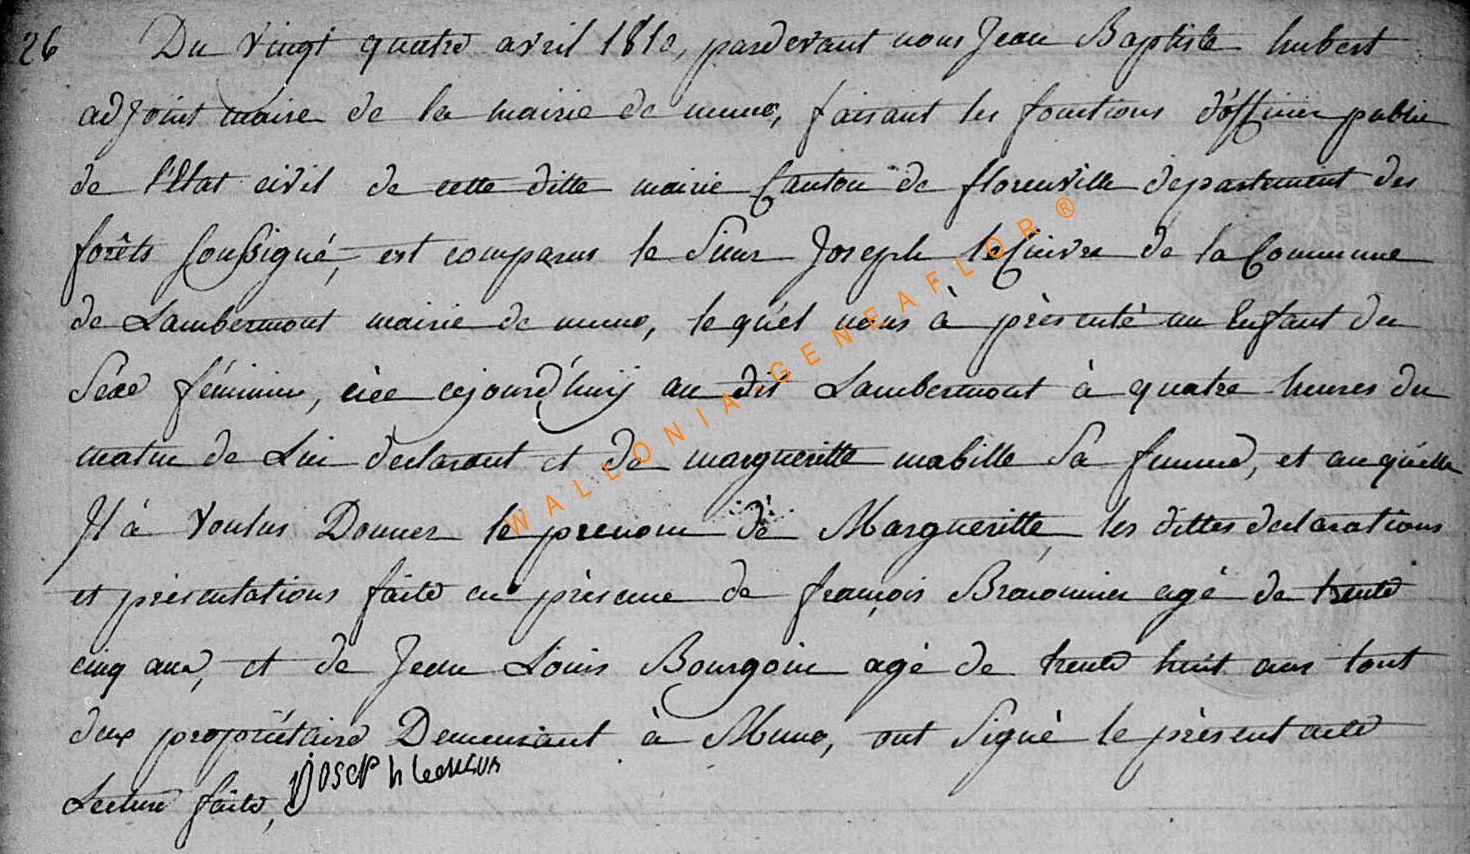 26 Du vingt quatre avril 1810, pardevant nous Jean Baptiste hubert
adjoint maire de la mairie de muno, faisant les fonctions d'officier public
de l'Etat civil de cette ditte mairie Canton de florenville departement des
forêts soussigné, est comparus le Sieur Joseph leCuivre de la Commune
de Lambermont mairie de muno, lequel nous à présenté un Enfant du
Sexe féminin, née cejourd'huij au dit Lambermont à quatre heures du
matin de Lui declarant et de margueritte mabille Sa femme, et auquelle
Il à voulus Donner le prenom de Margueritte, les dittes declarations
et présentations faite en présence de françois agé de trente
cinq ans, et de Jean Louis Bourgoin agé de trente huit ans tout
deux propriétaire Demeurant à Muno, ont Signé le présent acte
Lecture faite, Joseph
WALLONIA-GENEAFLOR®